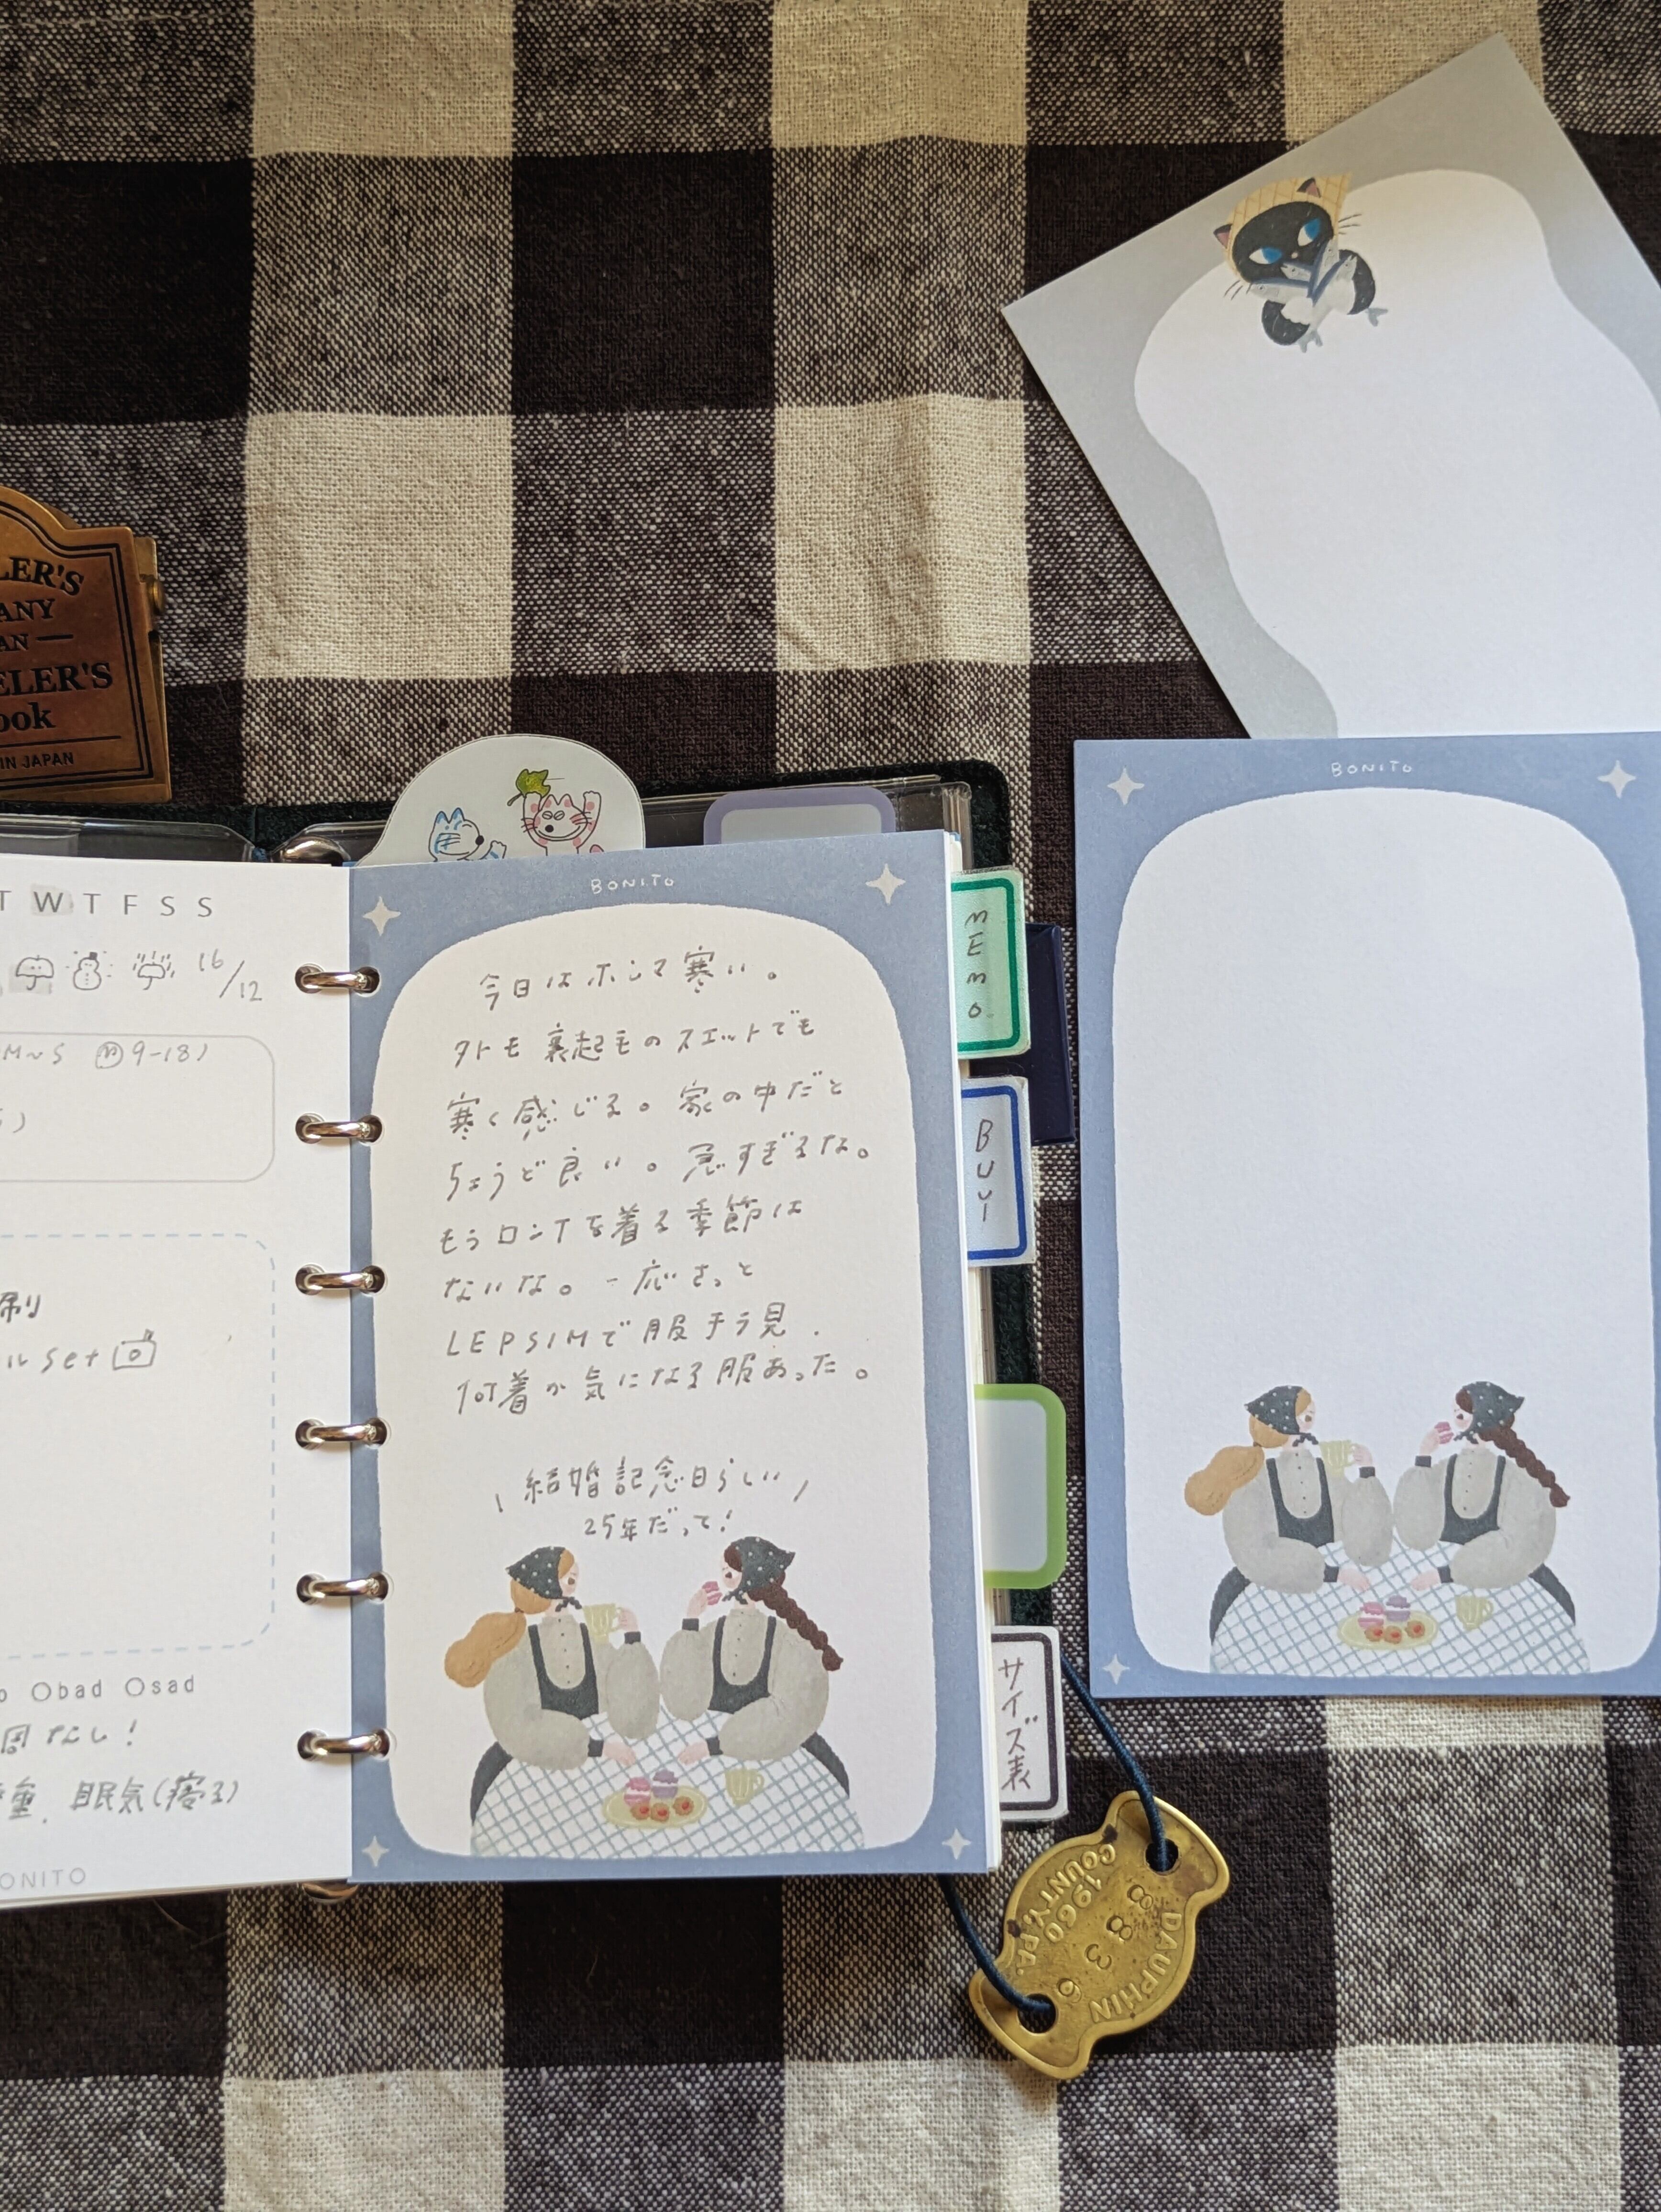 LER'S
ANY
AN —
ELER'S
ook
IN JAPAN
T W T F S S
16/12
M~S 9-18)
刷
ル set
bad sad
周なし!
重. 眠気(寝る)
ONITO
BONITO
今日はホンマ寒い。
外も裏起毛のスエットでも
寒く感じる。家の中だと
ちょうど良い。急すぎるな。
もうロンTを着る季節は
ないな。一応さっと
LEPSIMで服チラ見.
何着か気になる服あった。
\ 結婚記念日らしい /
25年だって!
MEMO
BUY
サイズ表
BONITO
DAUPHIN
8836
1960
COUNTY, PA.